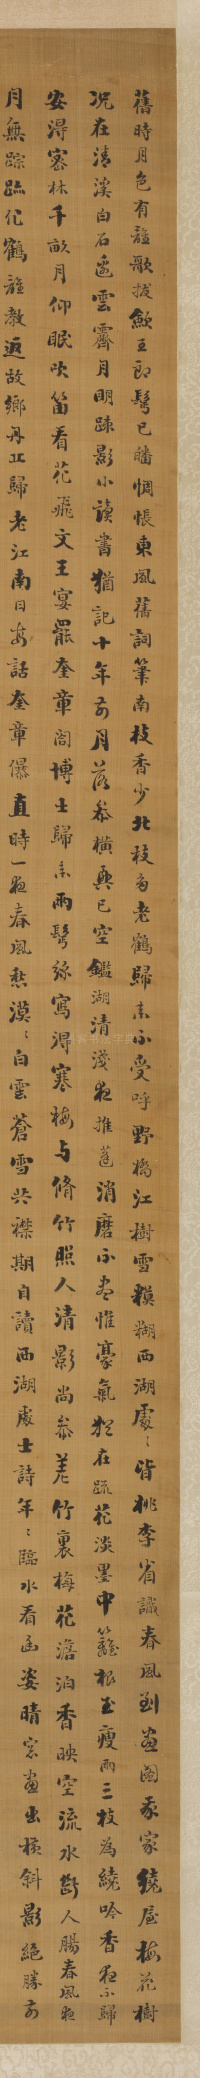 舊時月色有誰歌拔劍王郎鬢已皤惆悵東風舊詞筆南枝香少北枝多老鶴歸來不受呼野橋江樹雪糢糊西湖處〻皆桃李省識春風到畫圖我家繞屋梅花樹
況在清溪白石邊雲霽月明疎影小讀書猶記十年前月落參橫興已空鑑湖清淺夜推蓬消磨不盡惟豪氣猶在疏花淡墨中籬根玉瘦兩三枝為繞吟香夜不歸
安得寒林千畝月仰眠吹笛看花飛文王宴罷奎章閣博士歸來兩鬢絲寫得寒梅与脩竹照人清影尚參差竹裏梅花澹泊香映空流水斷人腸春風夜
月無踪跡化鶴誰教返故鄉丹丘歸老江南日每話奎章儤直時一夜春風愁漠〻白雲蒼雪共襟期自讀西湖處士詩年〻臨水看幽姿晴窓畫出橫斜影絕勝前